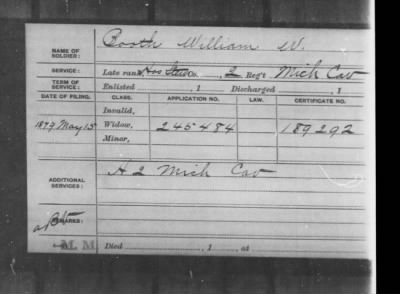 Booth William W.
NAME OF SOLDIER:
SERVICE: Late rank, Hos Stew Co. , 2 Reg't Mich Cav
TERM OF SERVICE: Enlisted , 1 Discharged , 1
DATE OF FILING. CLASS. APPLICATION NO. LAW. CERTIFICATE NO.
Invalid,
May 15 Widow, 245484 189292
Minor,
H 2 Mich Cav
ADDITIONAL SERVICES:
REMARKS:
M. M. Died , 1 , at